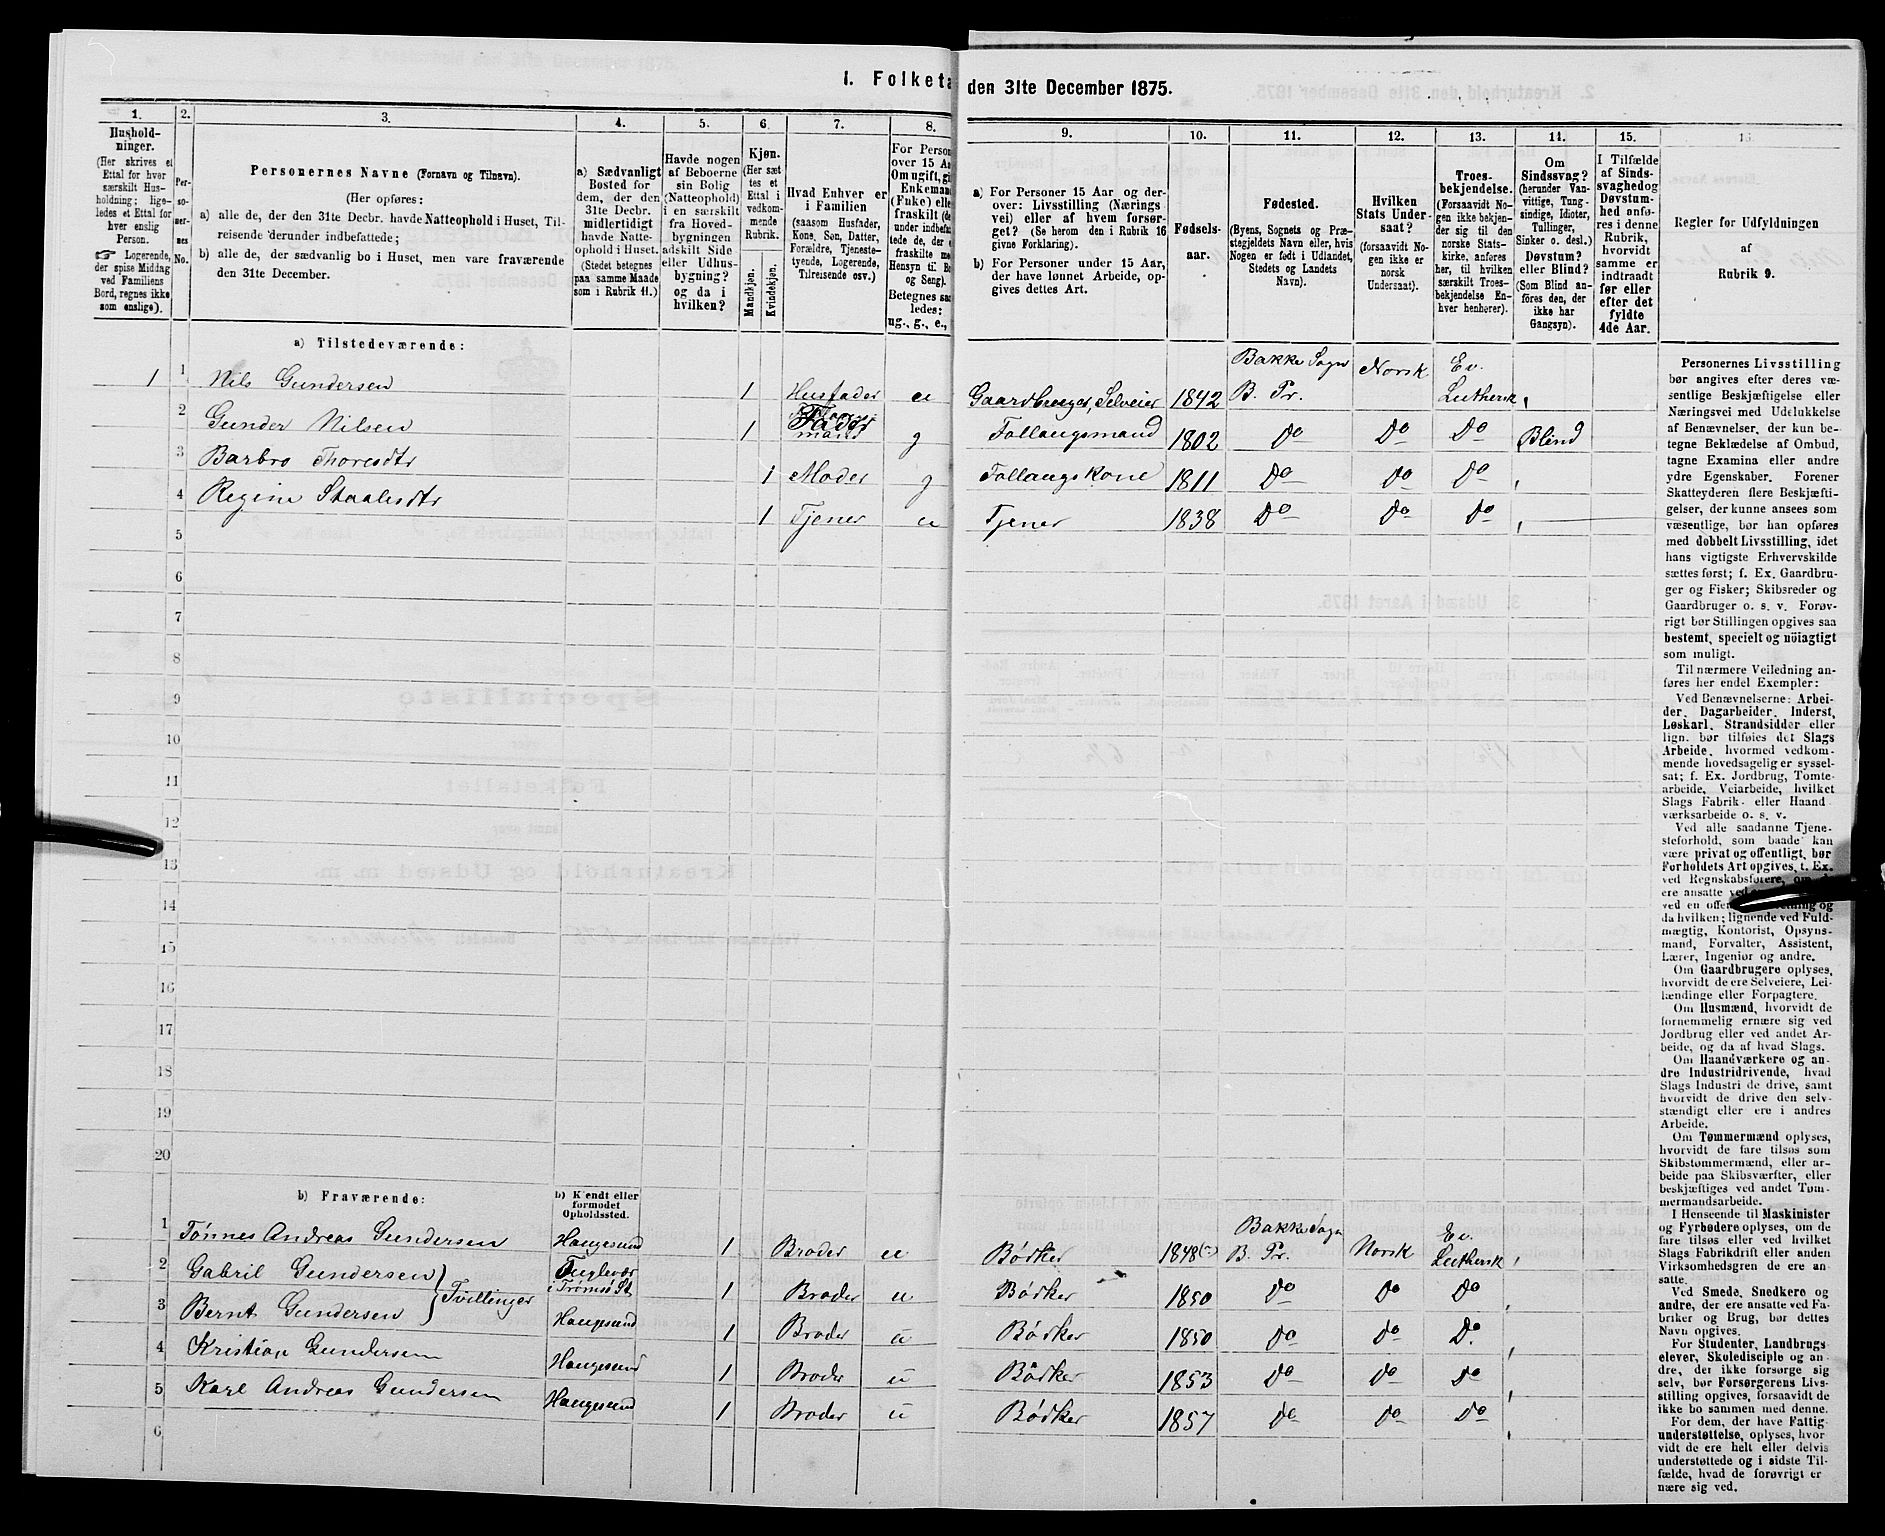 I. Folketa
den 31te December 1875.
1.
Hushold-
ninger.
(Her skrives et
Ettal for hver
særskilt Hus-
holdning; lige-
ledes et Ettal for
hver enslig
Person.
Logerende,
der spise Middag
ved Familiens
Bord, regnes ikke
som enslige).
2.
Per-
so-
ner-
nes
No.
3.
Personernes Navne (Fornavn og Tilnavn).
(Her opføres:
a) alle de, der den 31te Decbr. havde Natteophold i Huset, Til-
reisende derunder indbefattede;
b) alle de, der sædvanlig bo i Huset, men vare fraværende
den 31te December.
4.
a) Sædvanligt
Bosted for
dem, der den
31te Decbr.
midlertidigt
havde Natte-
ophold i Huset.
(Stedet betegnes
paa samme Maade
som i Rubrik 11.)
5.
Havde nogen
af Beboerne
sin Bolig
(Natteophold)
i en særskilt
fra Hoved-
bygningen
adskilt Side
eller Udhus-
bygning?
og da i
hvilken?
6.
Kjøn.
(Her sæt
tes et
Ettal i
vedkom-
mende
Rubrik.
Mandkjøn.
Kvindekjøn.
7.
Hvad Enhver er
i Familien
(saasom Husfader,
Kone, Søn, Datter,
Forældre, Tjeneste-
tyende, Logerende,
Tilreisende osv.)
8.
For Person
over 15 Aa
Om ugift, gi
Enkemand
(Enke) elle
fraskilt (de
under indbefat
tede de, der e
fraskilte me
Hensyn til Bo
og Seng).
Betegnes saa
ledes:
ug., g., e.,
9.
a) For Personer 15 Aar og der-
over: Livsstilling (Nærings
vei) eller af hvem forsør-
get? (Se herom den i Rubrik 16
givne Forklaring).
b) For Personer under 15 Aar,
der have lønnet Arbeide, op-
gives dettes Art.
10.
Fødsels-
aar.
11.
Fødested.
(Byens, Sognets og Præ-
stegjeldets Navn eller, hvis
Nogen er født i Udlandet,
Stedets og Landets
Navn).
12.
Hvilken
Stats Under-
saat?
(forsaavidt No-
gen ikke er
norsk
Undersaat).
13.
Troes-
bekjendelse.
(Forsaavidt No-
gen ikke bekjen-
der sig til den
norske Stats-
kirke, anføres
her, til hvilken
særskilt Troes-
bekjendelse En-
hver henhører).
14.
Om
Sindssvag?
(herunder Van-
vittige, Tung-
sindige, Idioter,
Tullinger,
Sinker o. desl.)
Døvstum?
eller Blind?
(Som Blind an-
føres den, der
ikke har
Gangsyn).
15.
I Tilfælde
af Sinds-
svaghed og
Døvstum-
hed anfø-
res i denne
Rubrik,
hvorvidt
samme er
indtraadt
før eller
efter det
fyldte
4de Aar.
16.
Regler før Udfyldningen
af
Rubrik 9.
a) Tilstedeværende:
1 1 Nils Gundersen 1 Husfader u Gaardbruger, Selveier 1842 Bakke Sogn B. Pr. Norsk Ev. Luthersk
2 Gunder Nilsen 1 Fader g Follaugsmand 1802 Do Do Do Blind
3 Barbro Thoresdtr 1 Moder g Follaugskone 1811 Do Do Do
4 Regine Staalesdtr 1 Tjener u Tjener 1838 Do Do Do
5
6
7
8
9
10
11
12
13
14
15
16
17
18
19
20
b) Fraværende:
b) Kjendt eller
formodet
Opholdssted.
1 Tønnes Andreas Gundersen Haugesund 1 Broder u Bødker 1848 Bakke Sogn B. Pr. Norsk Ev. Luthersk
2 Gabril Gundersen } Tvillinger Fuglevær i Tromsø St 1 Broder u Bødker 1850 Do Do Do
3 Bernt Gundersen Haugesund 1 Broder u Bødker 1850 Do Do Do
4 Kristian Gundersen Haugesund 1 Broder u Bødker 1853 Do Do Do
5 Karl Andreas Gundersen Haugesund 1 Broder u Bødker 1857 Do Do Do
6
Personernes Livsstilling
bør angives efter deres væ-
sentlige Beskjæftigelse eller
Næringsvei med Udelukkelse
af Benævnelser, der kun be-
tegne Beklædelse af Ombud,
tagne Examina eller andre
ydre Egenskaber. Forener
Skatteyderen flere Beskjæfti-
gelser, der kunne ansees som
væsentlige, bør han opføres
med dobbelt Livsstilling, idet
hans vigtigste Erhvervskilde
sættes først; f. Ex. Gaardbru-
ger og Fisker; Skibsreder og
Gaardbruger o. s. v. Forøv-
rigt bør Stillingen opgives saa
bestemt, specielt og nöiagtigt
som muligt.
Til nærmere Veiledning an-
føres her endel Exempler:
Ved Benævnelserne: Arbei-
der, Dagarbeider, Inderst,
Løskarl, Strandsidder eller
lign. bør tilføies det Slags
Arbeide, hvormed vedkom-
mende hovedsagelig er syssel-
sat; f. Ex. Jordbrug, Tomte-
arbeide, Veiarbeide, hvilket
Slags Fabrik- eller Haand
værksarbeide o. s. v.
Ved alle saadanne Tjene-
steforhold, som baade kan
være privat og offentligt, bør
Forholdets Art opgives, t. Ex.
ved Regnskabsførere,
ere ansatte ved
ved en offen og
da hvilken; lignende ved Fuld-
mægtig, Kontorist, Opsyns-
mand, Forvalter, Assistent,
Lærer, Ingeniør og andre.
Om Gaardbrugere oplyses,
hvorvidt de ere Selveiere, Lei-
lændinge eller Forpagtere.
Om Husmænd, hvorvidt de
fornemmelig ernære sig ved
Jordbrug eller ved andet Ar-
beide, og da af hvad Slags.
Om Haandværkere og an-
dre Industridrivende, hvad
Slags Industri de drive, samt
hvorvidt de drive den selv-
stændigt eller ere i andres
Arbeide.
Om Tømmermænd oplyses,
hvorvidt de fare tilsøs som
Skibstømmermænd, eller ar-
beide paa Skibsværfter, eller
beskjæftiges ved andet Tøm-
mermandsarbeide.
I Henseende til Maskinister
og Fyrbødere oplyses, om de
fare tilsøs eller ved hvilket
Slags Fabrikdrift eller anden
Virksomhedsgren de ere an-
satte.
Ved Smede, Snedkere og
andre, der ere ansatte ved Fa-
briker og Brug, bør dettes
Navn opgives.
For Studenter, Landbrugs-
elever, Skoledisciple og an-
dre, der ikke forsørge sig
selv, bør Forsørgerens Livs-
stilling opgives, forsaavidt de
ikke bo sammen med denne.
For dem, der have Fattig-
understøttelse, oplyses, hvor
vidt de ere helt eller delvis
understøttede og i sidste Til-
fælde, hvad de forøvrigt er
nære sig ved.